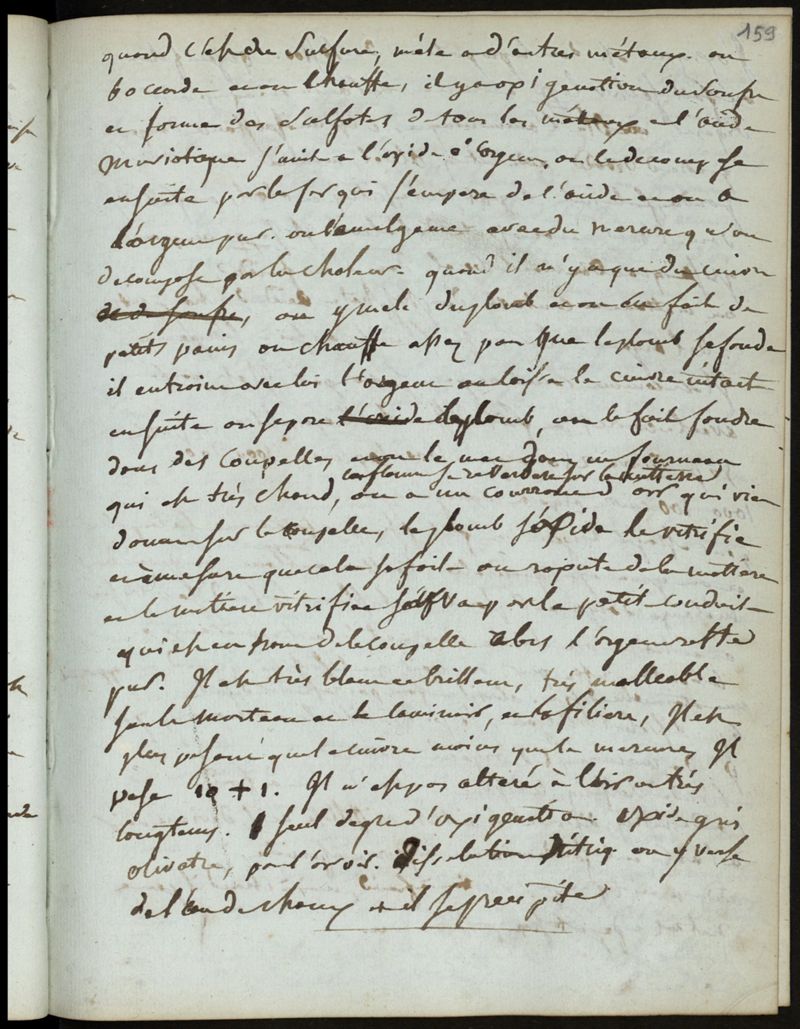 159
quand c'est du sulfure, mêlé a d'autres métaux. on
boccarde et on chauffe, il y a oxigenation du soufre
et forme des sulfates de tous les métaux et l'acide
muriatique s'unit a l'oxide d'argent, on le decompose
ensuite par le fer qui s'empare de l'acide et on a
l'argent pur. ou l'amalgame avec du mercure qu'on
decompose par la chaleur. quand il n'y a que du cuivre
et du soufre, on y mele du plomb et on en fait de
petits pains on chauffe assez pour que le plomb se fonde
il entraine avec lui l'argent en laissant le cuivre intact
ensuite on separe l'oxide le plomb, on le fait fondre
dans des coupelles et on le met dans un fourneau
la flamme se reverbere sur la matiere
qui est très chaud, on a un courrant d'air qui vient
donner sur la coupelle, le plomb s'oxide se vitrifie
et à mesure que cela se fait on rajoute de la matiere
et la matiere vitrifiée s'en va par le petit conduit
qui est au trou de la coupelle alors l'argent reste
pur. Il est très blanc et brillant, très malleable
sous le marteau et le laminoir, et la filiere, Il est
plus pesant que le cuivre moins que le mercure, Il
pese 10 + 1. Il n'est pas alteré à l'air on très
longtems. 1 seul degré d'oxigenation oxide gris
olivatre, pour l'avoir. dissolution nitriq on y verse
de l'eau de chaux et il se precipite